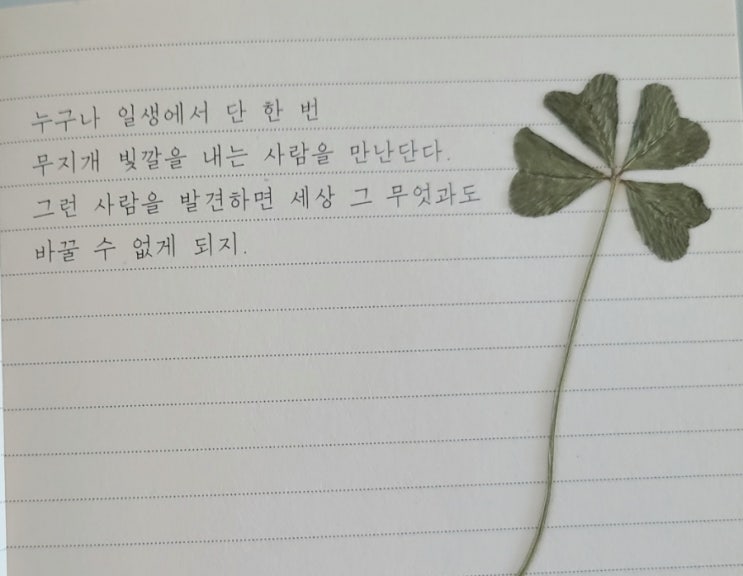 누구나 일생에서 단 한 번
무지개 빛깔을 내는 사람을 만난단다.
그런 사람을 발견하면 세상 그 무엇과도
바꿀 수 없게 되지.